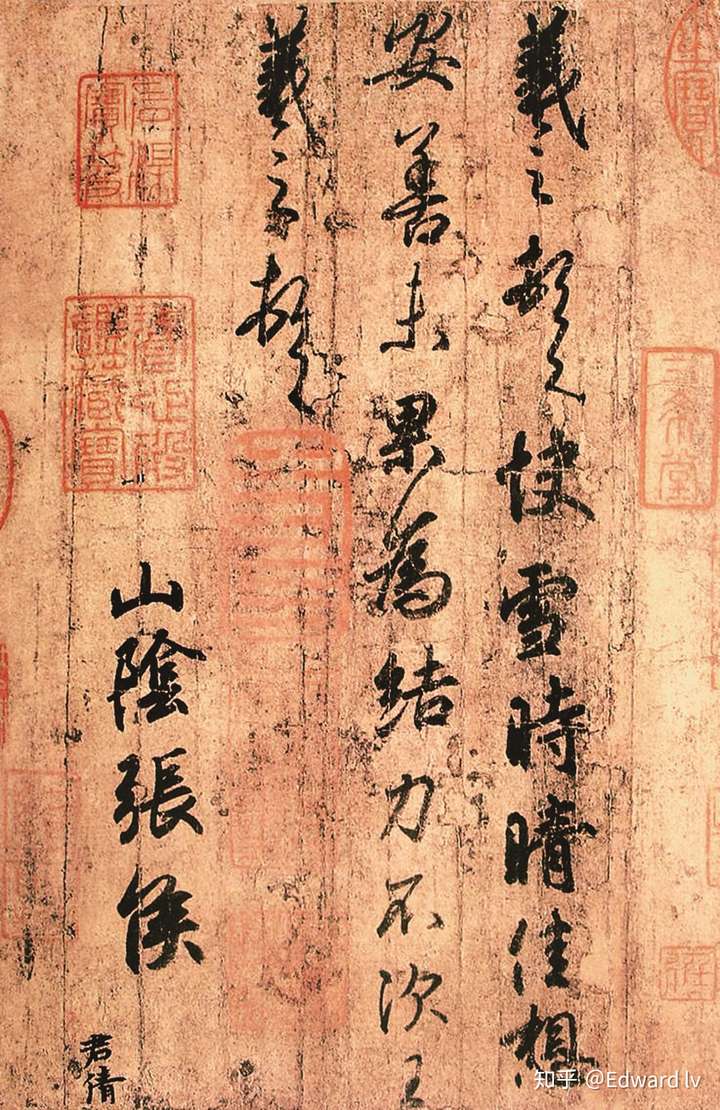 羲之頓首快雪時晴佳想
安善未果為結力不次王
羲之頓首
山陰張侯
君倩
三希堂
知乎 @Edward lv